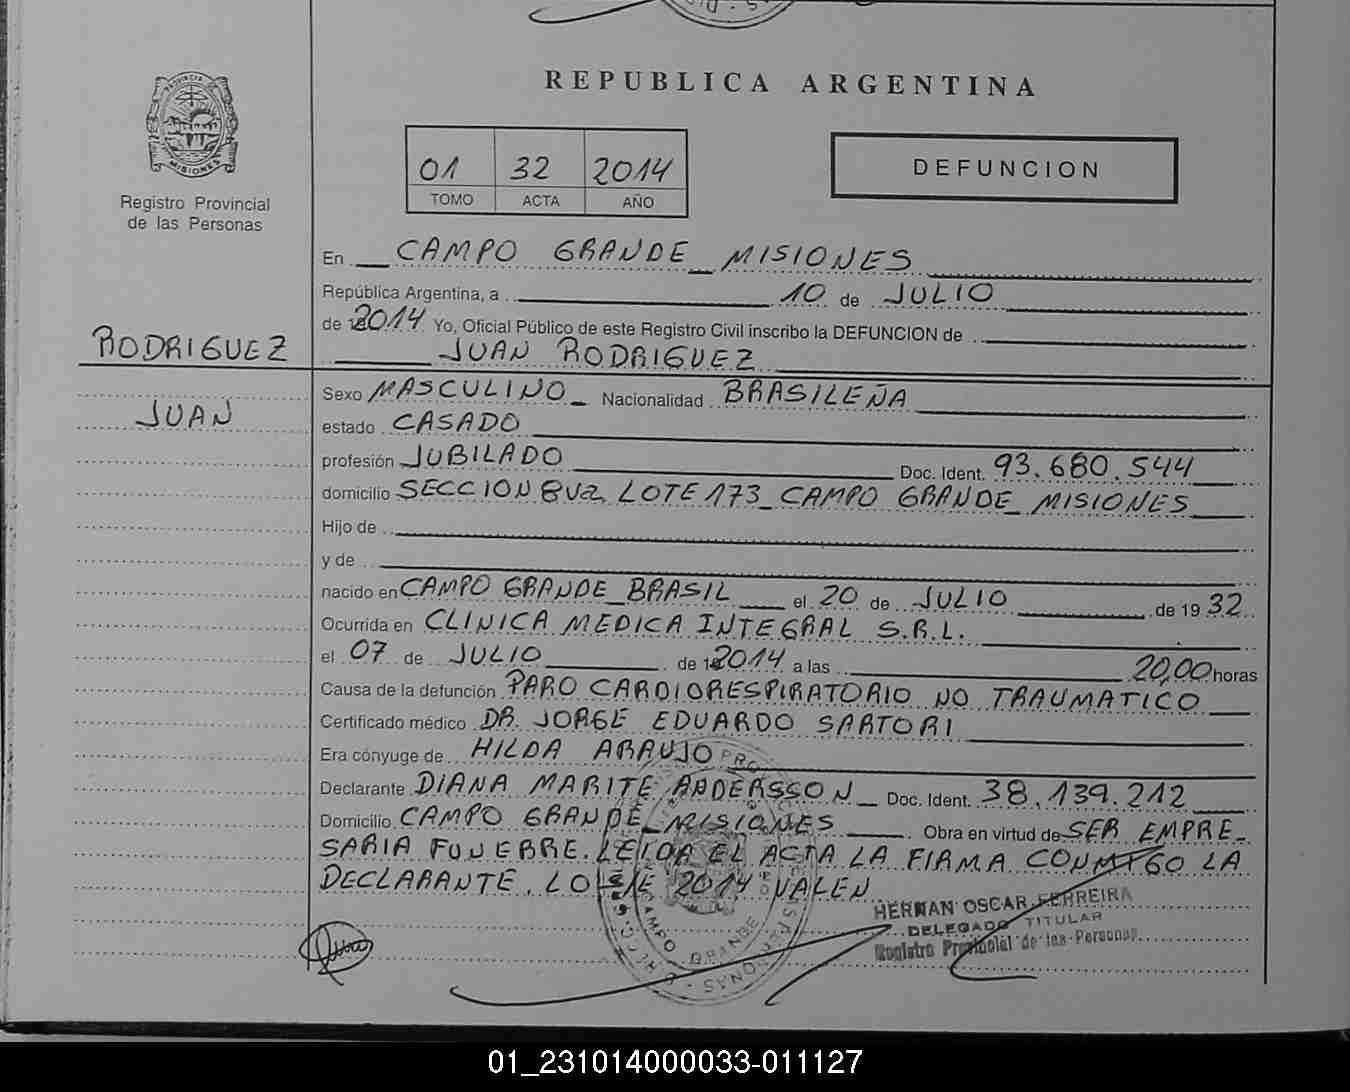 REPUBLICA ARGENTINA
PROVINCIA DE
MISIONES
Registro Provincial
de las Personas
01 32 2014
TOMO ACTA AÑO
DEFUNCION
En CAMPO GRANDE MISIONES
República Argentina, a 10 de JULIO
de 2014 Yo, Oficial Público de este Registro Civil inscribo la DEFUNCION de
JUAN RODRIGUEZ
RODRIGUEZ
JUAN
Sexo MASCULINO Nacionalidad BRASILEÑA
estado CASADO
profesión JUBILADO Doc. Ident. 93.680.544
domicilio SECCION 8va LOTE 173 CAMPO GRANDE MISIONES
Hijo de
y de
nacido en CAMPO GRANDE BRASIL el 20 de JULIO de 1932
Ocurrida en CLINICA MEDICA INTEGRAL S.R.L.
el 07 de JULIO de 2014 a las 20,00 horas
Causa de la defunción PARO CARDIORESPIRATORIO NO TRAUMATICO
Certificado médico DR. JORGE EDUARDO SARTORI
Era cónyuge de HILDA ARAUJO
Declarante DIANA MARITE ANDERSSON Doc. Ident. 38.139.212
Domicilio CAMPO GRANDE MISIONES Obra en virtud de SER EMPRE-
SARIA FUNEBRE. LEIDA EL ACTA LA FIRMA CONMIGO LA
DECLARANTE. 2014 VALEN
HERNAN OSCAR FERREIRA
DELEGADO TITULAR
Registro Provincial de las Personas
CAMPO GRANDE
01_231014000033-011127